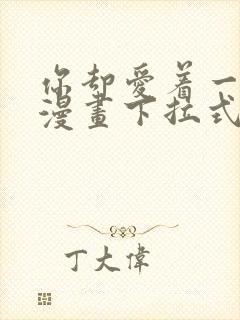 你却愛着一
漫畫下拉式
丁大偉